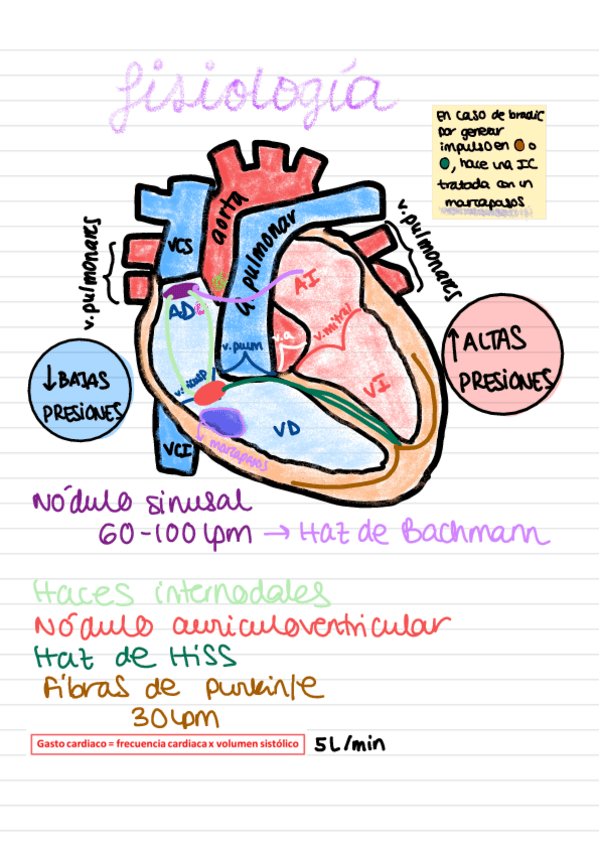 fisiología
En caso de bradic
por generar
impulso en o
, hace una IC
tratada con un
marcapasos
v.pulmonares
VCS
aorta
a pulmonar
v.pulmonares
AD
AI
v.pulm
v.a
v.mitral
VI
VD
VCI
marcapasos
↓BAJAS
PRESIONES
↑ALTAS
PRESIONES
Nódulo sinusal
60-100 lpm → Haz de Bachmann
Haces internodales
Nódulo auriculoventricular
Haz de Hiss
Fibras de purkinje
30 lpm
Gasto cardiaco = frecuencia cardiaca x volumen sistólico
5L/min